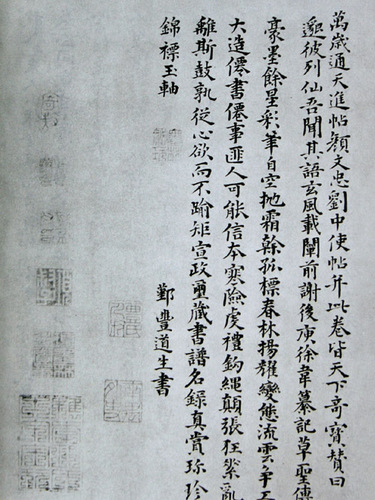 萬歲通天進帖顏文忠劉中使帖并此卷皆天下奇寶贊曰
邈彼列仙吾聞其語玄風載闡前謝後庾徐韋摹記草聖傳
豪墨餘星彩筆自空拋霜幹孤標春林揚耀變態流雲
大造僊書僊事匪人可能信本寒險虔禮鉤繩顛張狂縈亂
離斯鼓孰從心欲而不踰矩宣政璽藏書譜名錄真賞珎珍
錦褾玉軸
鄞豐道生書